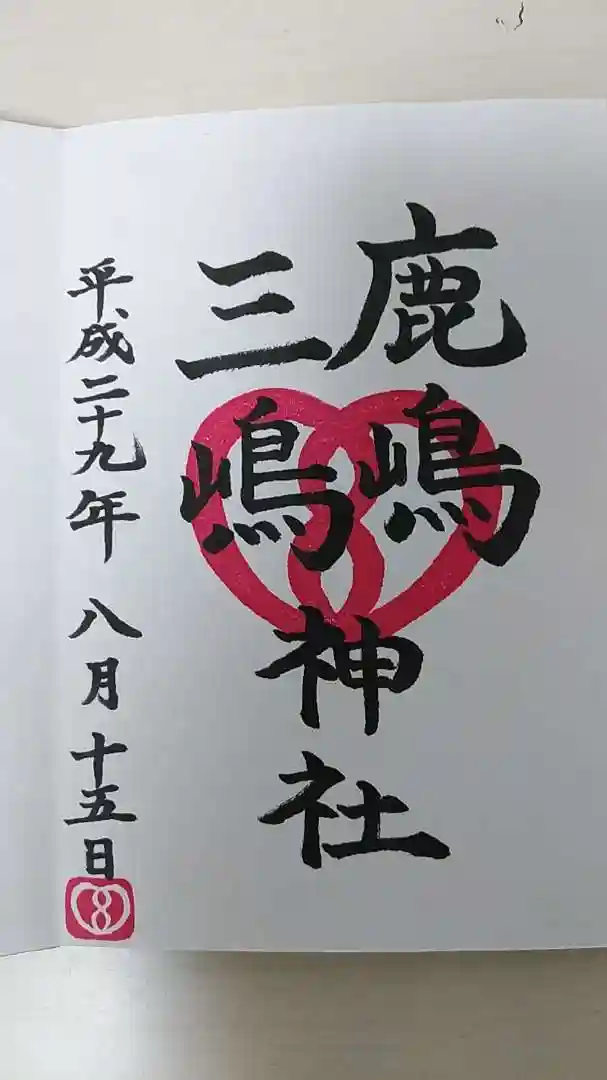 鹿嶋
三嶋
神社
平成二十九年 八月 十五日